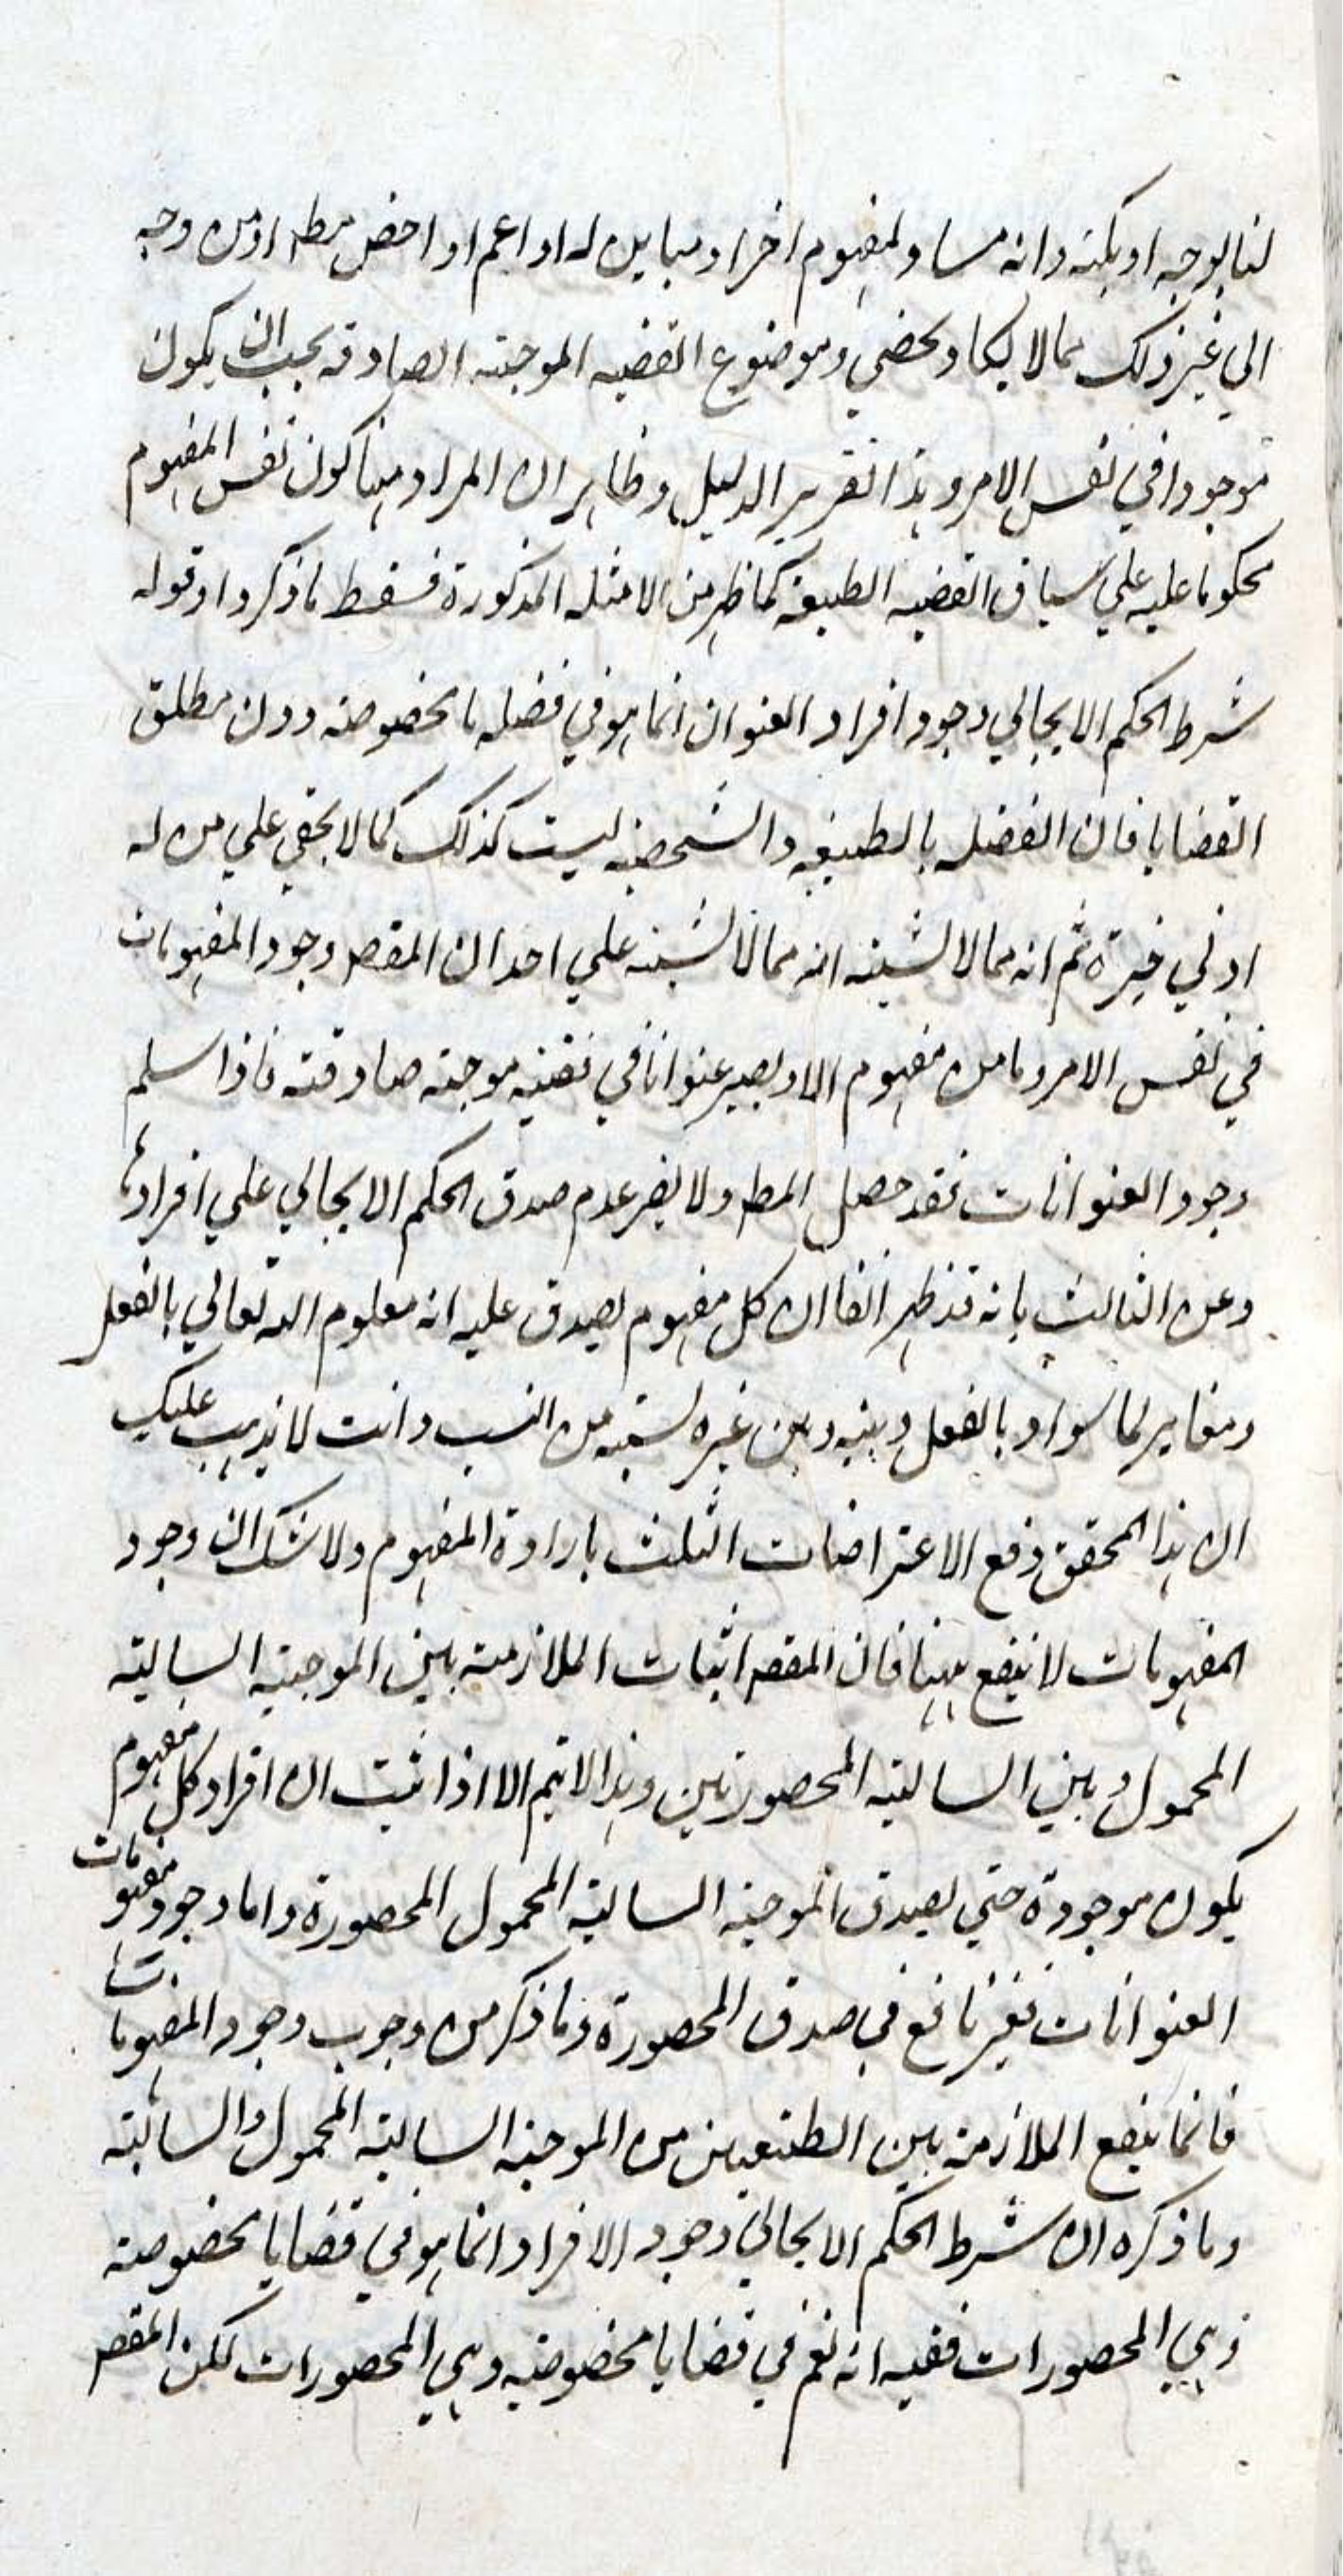 لنا بوجه او بكنه وانه مساو لمفهوم اخر او مباين له او اعم او اخص مط او من وجه
الي غير ذلك مما لا يكاد يحصي وموضوع القضيه الموجبته الصادقه يجب ان يكون
موجودا في نفس الامر وهذا تقرير الدليل وظاهر ان المراد ههنا كون نفس المفهوم
محكوما عليه علي سياق القضيه الطبيعة كما ظهر من الامثله المذكورة فسقط ما ذكر واد قوله
شرط الحكم الايجابي وجود افراد العنوان انما هو في قضيه ما بخصوصه ودن مطلق
القضايا فان القضيه بالطبيعه والشخصيه ليست كذلك كما لا يخفي علي من له
ادني خبرة ثم انه مما لا يشتبه انه مما لا يشتبه علي احد ان المقصر وجود المفهومات
في نفس الامر وما من مفهوم الا ويصير عنوانا في قضيه موجبه صادقته فاذا سلم
وجود العنوانات فقد حصل المط ولا يضر عدم صدق الحكم الايجابي علي افرادها
وعن الثالث بانه قد ظهر انفا ان كل مفهوم يصدق عليه انه معلوم الله تعالي بالفعل
ومغاير لما سواه بالفعل وبينه وبين غيره نسبه من النسب وانت لا يذهب عليك
ان هذا المحقق دفع الاعتراضات الثلث بارادة المفهوم ولا شك ان وجود
المفهومات لا ينفع ههنا فان المقصر اثبات الملازمته بين الموجبته السالبته
المحمول وبين السالبته المحصورتين وهذا لا يتم الا اذا ثبت ان افراد كل مفهوم
يكون موجودة حتي يصدق الموجبه السالبة المحمول المحصورة واما وجود مفهومات
العنوانات فغير نافع في صدق المحصورة وما ذكر من وجوب وجود المفهومات
فانما ينفع الملازمة بين الطبيعين من الموجبه السالبته المحمول والسالبته
وما ذكره ان شرط الحكم الايجابي وجود الافراد انما هو في قضايا بخصوصه
وهي المحصورات ففيه انه نعم في قضايا مخصوصيه وهي المحصورات لكن المقصر